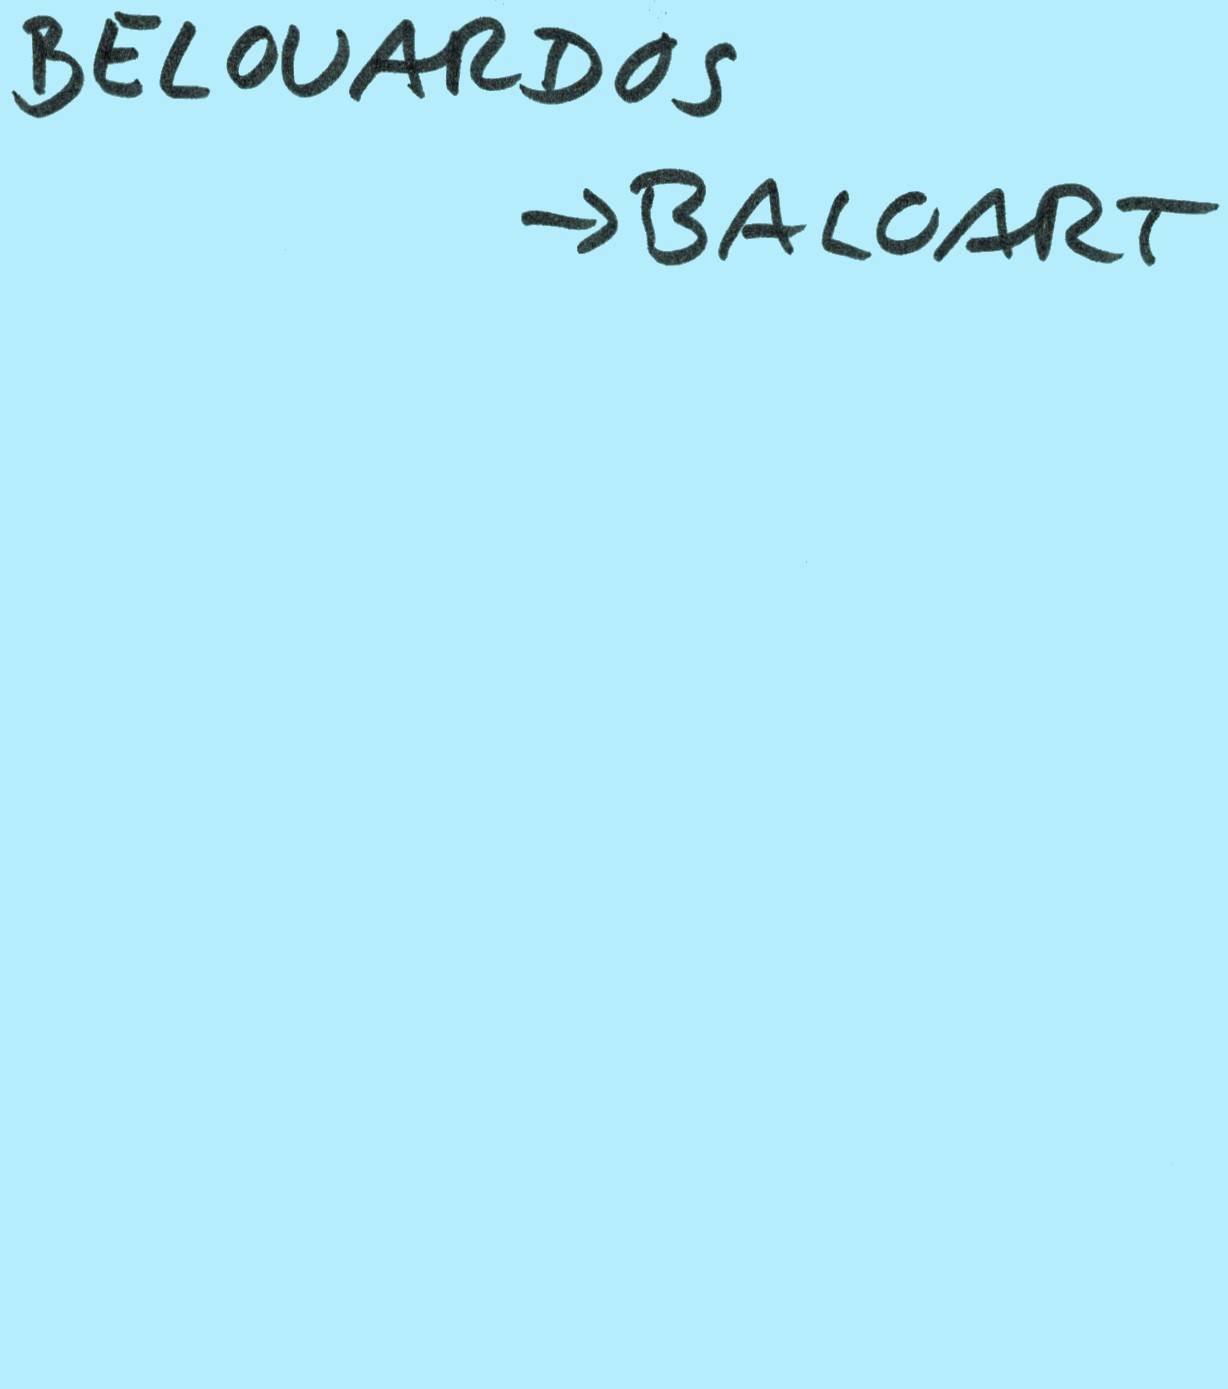 BELOUARDOS
→BALOART